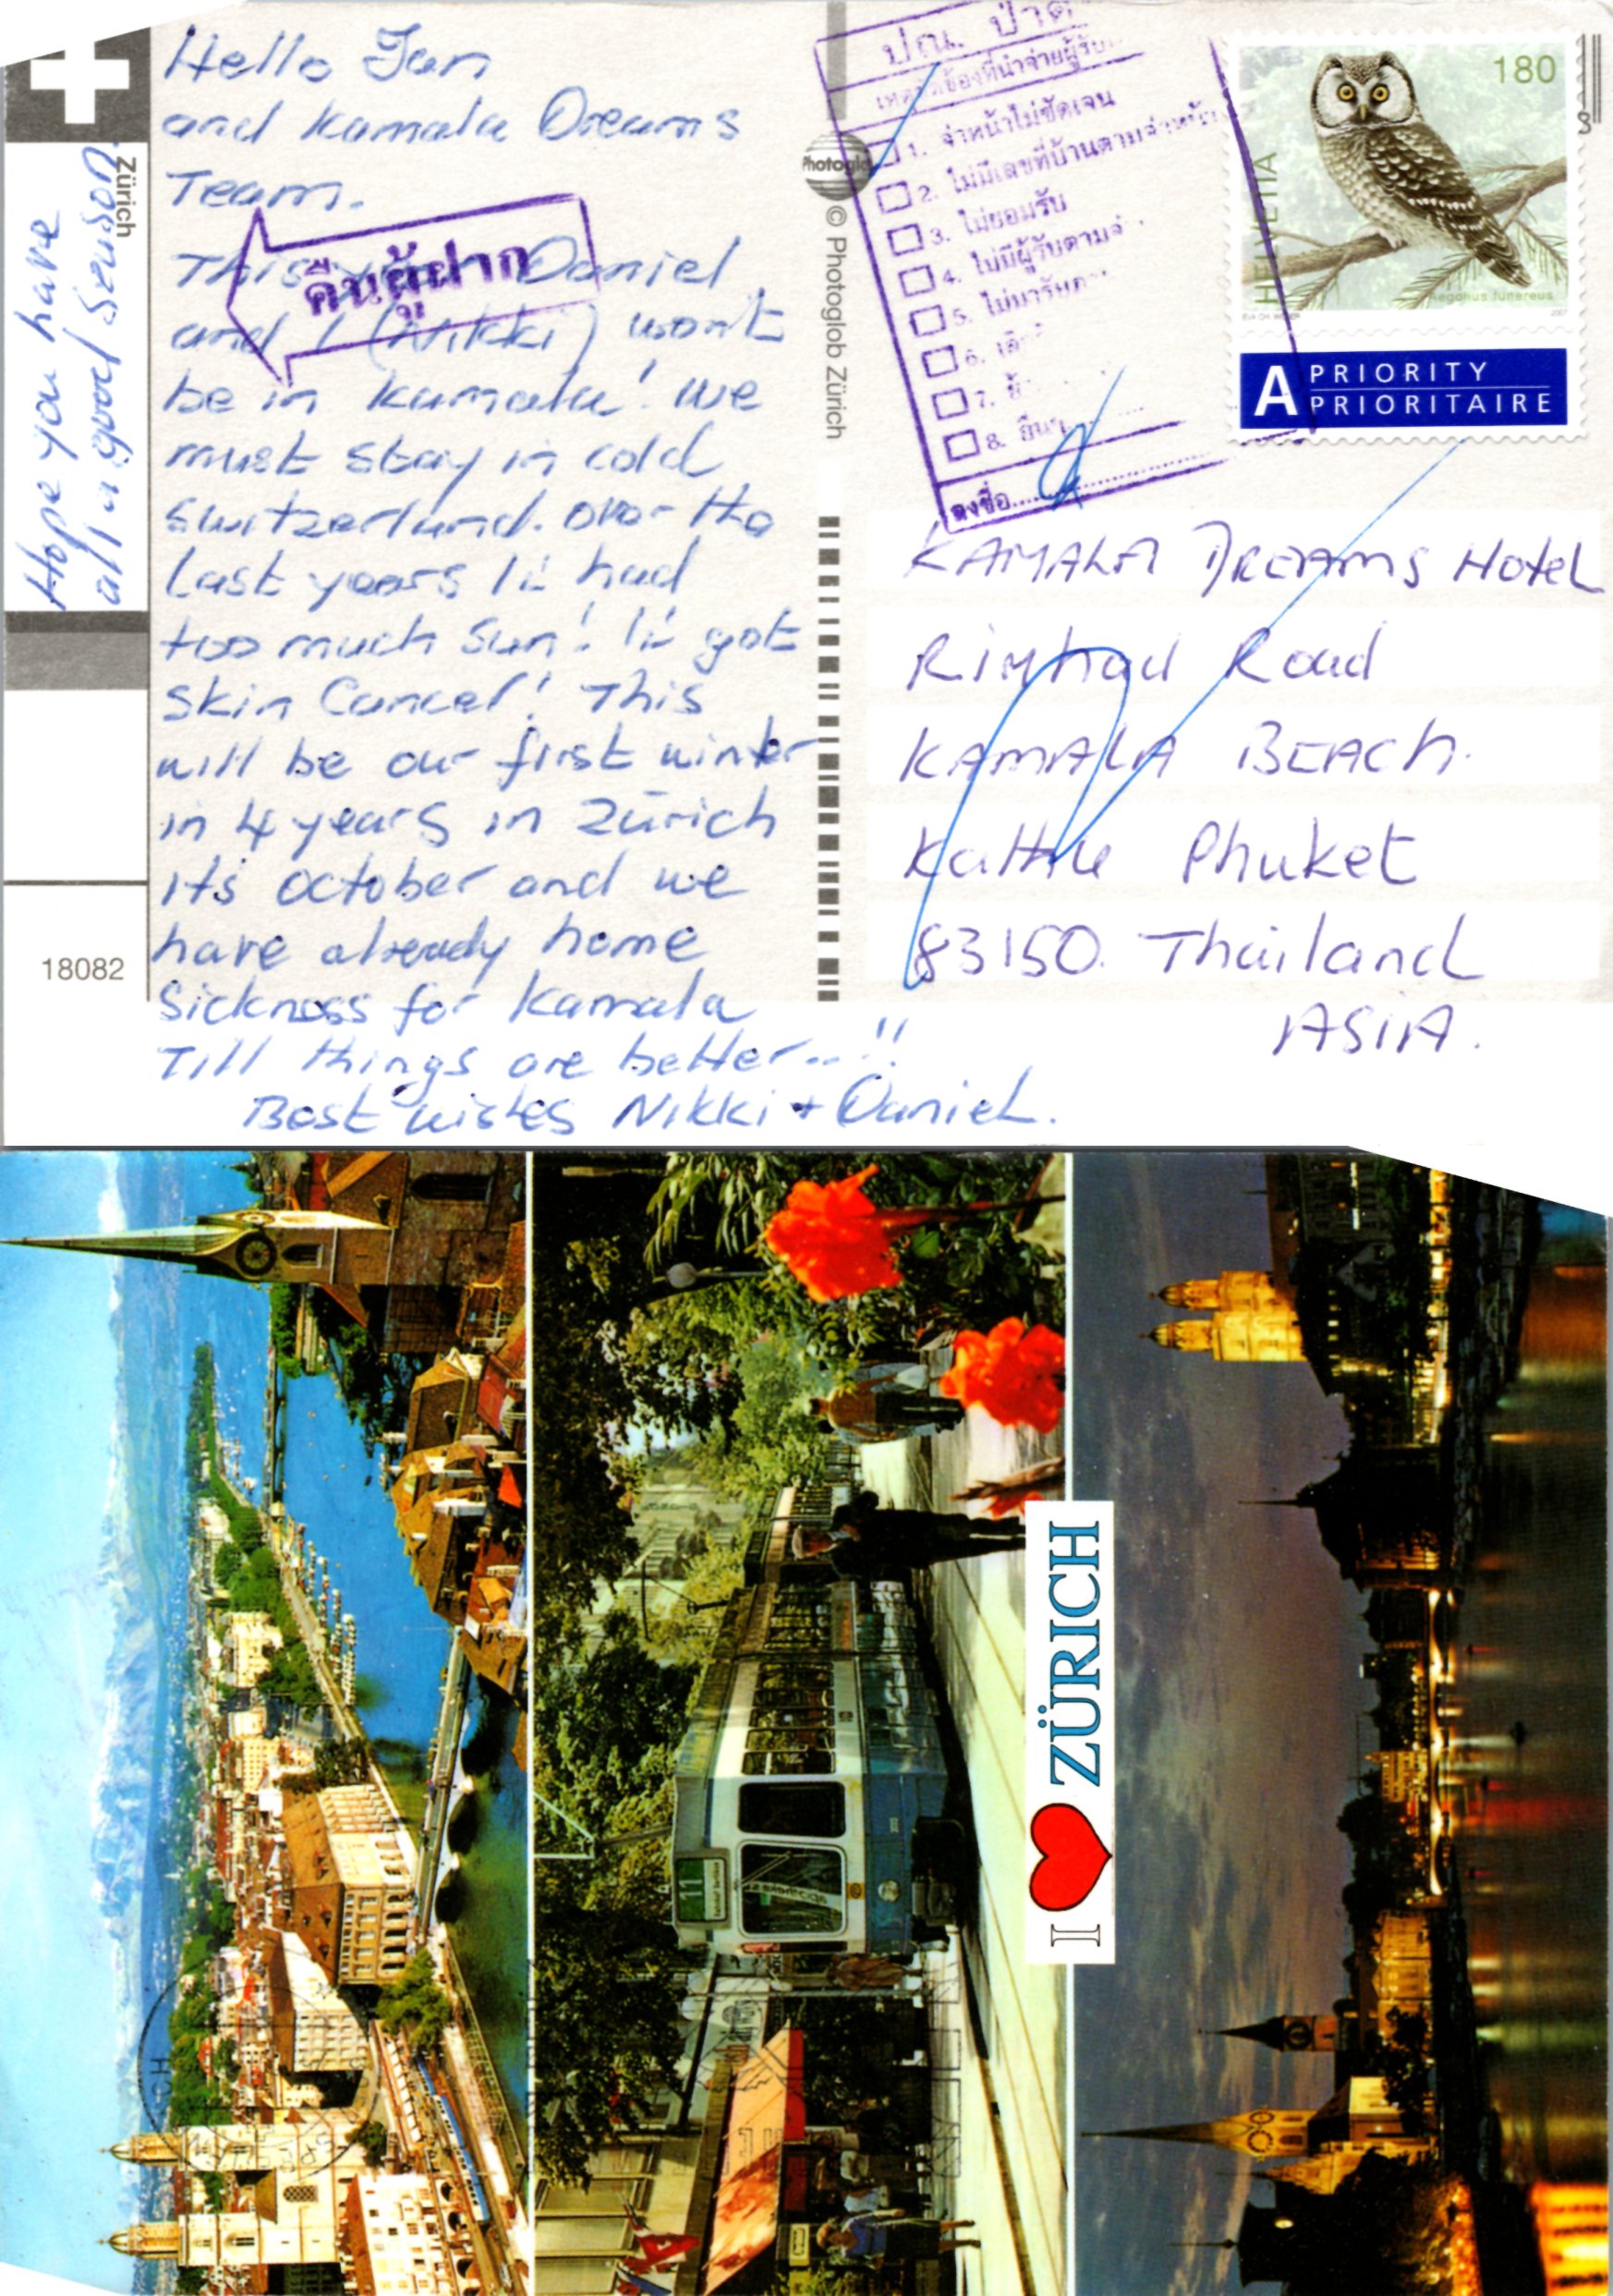 Hello Jan
and Kamala Dreams
Team.
This year Daniel
and I (Nikki) wont
be in Kamala! We
must stay in cold
Switzerland. Over the
last years I'i had
too much Sun! I'i got
Skin Cancer! This
will be our first winter
in 4 years in Zürich
its october and we
have already home
Sickness for Kamala
Till things are better...!!
Best wishes Nikki + Daniel.
Hope you have
all a good Season.
Zürich
18082
Photoglob
© Photoglob Zürich
คืนผู้ฝาก
ปณ. ป่าต
เหตุขัดข้องที่นำจ่ายผู้รับ
1. จ่าหน้าไม่ชัดเจน
2. ไม่มีเลขที่บ้านตามจ่าหน้า
3. ไม่ยอมรับ
4. ไม่มีผู้รับตามจ่
5. ไม่มารับ
6.
7.
8. อื่นๆ
ลงชื่อ
180
HELVETIA
Aegolius funereus
2007
A PRIORITY
PRIORITAIRE
KAMALA DREAMS Hotel
Rimhad Road
KAMALA BEACH.
Kathu Phuket
83150. Thailand
ASIA.
11
I ♥ ZÜRICH